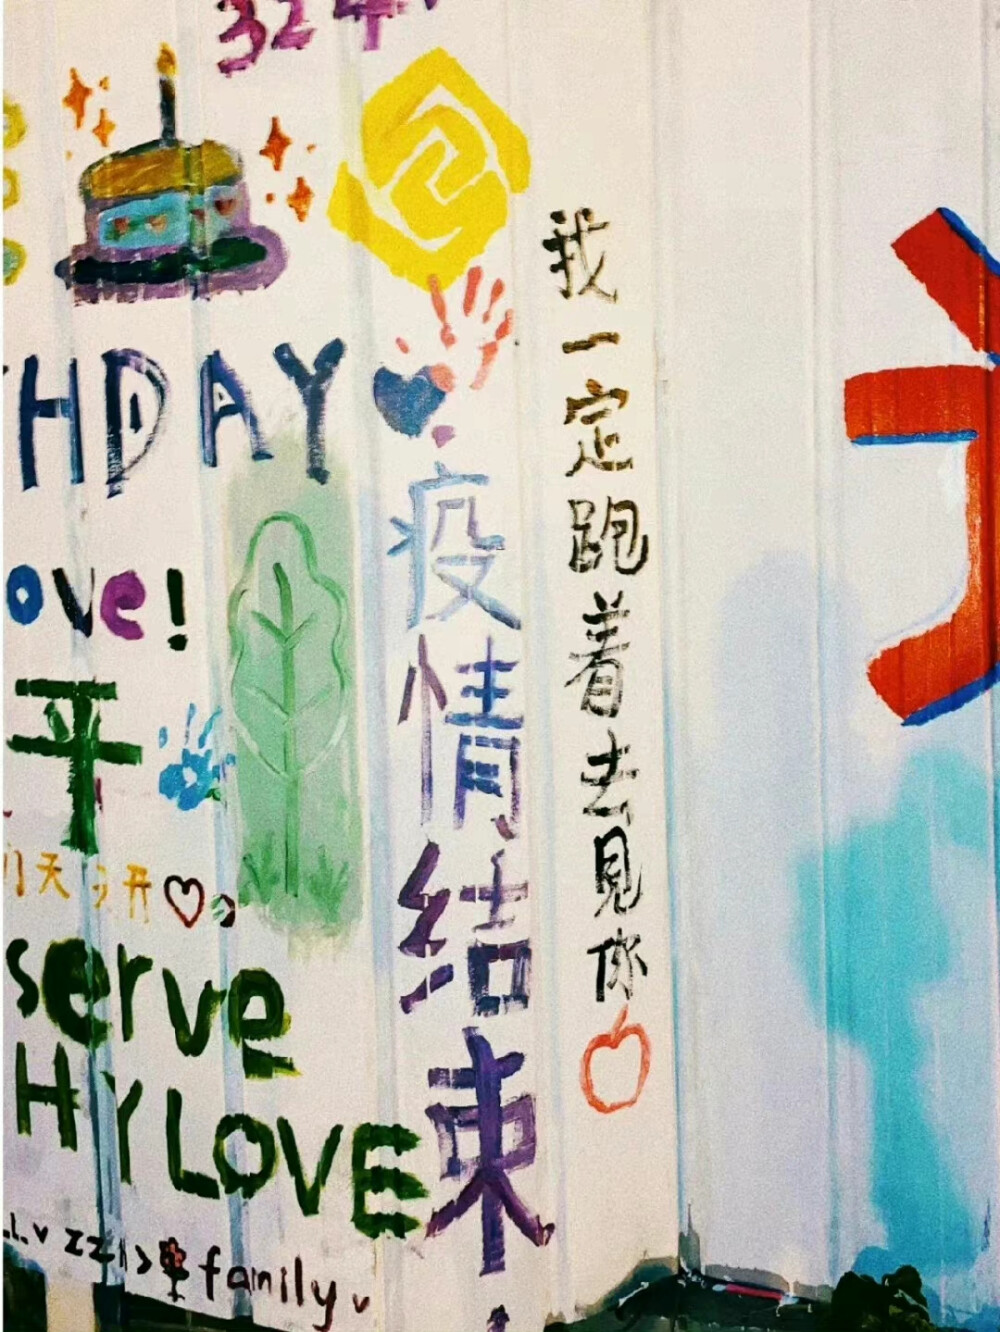 324
HDAY
ove!
平
天
开
serve
HYLOVE
family
疫情结束
我一定跑着去见你